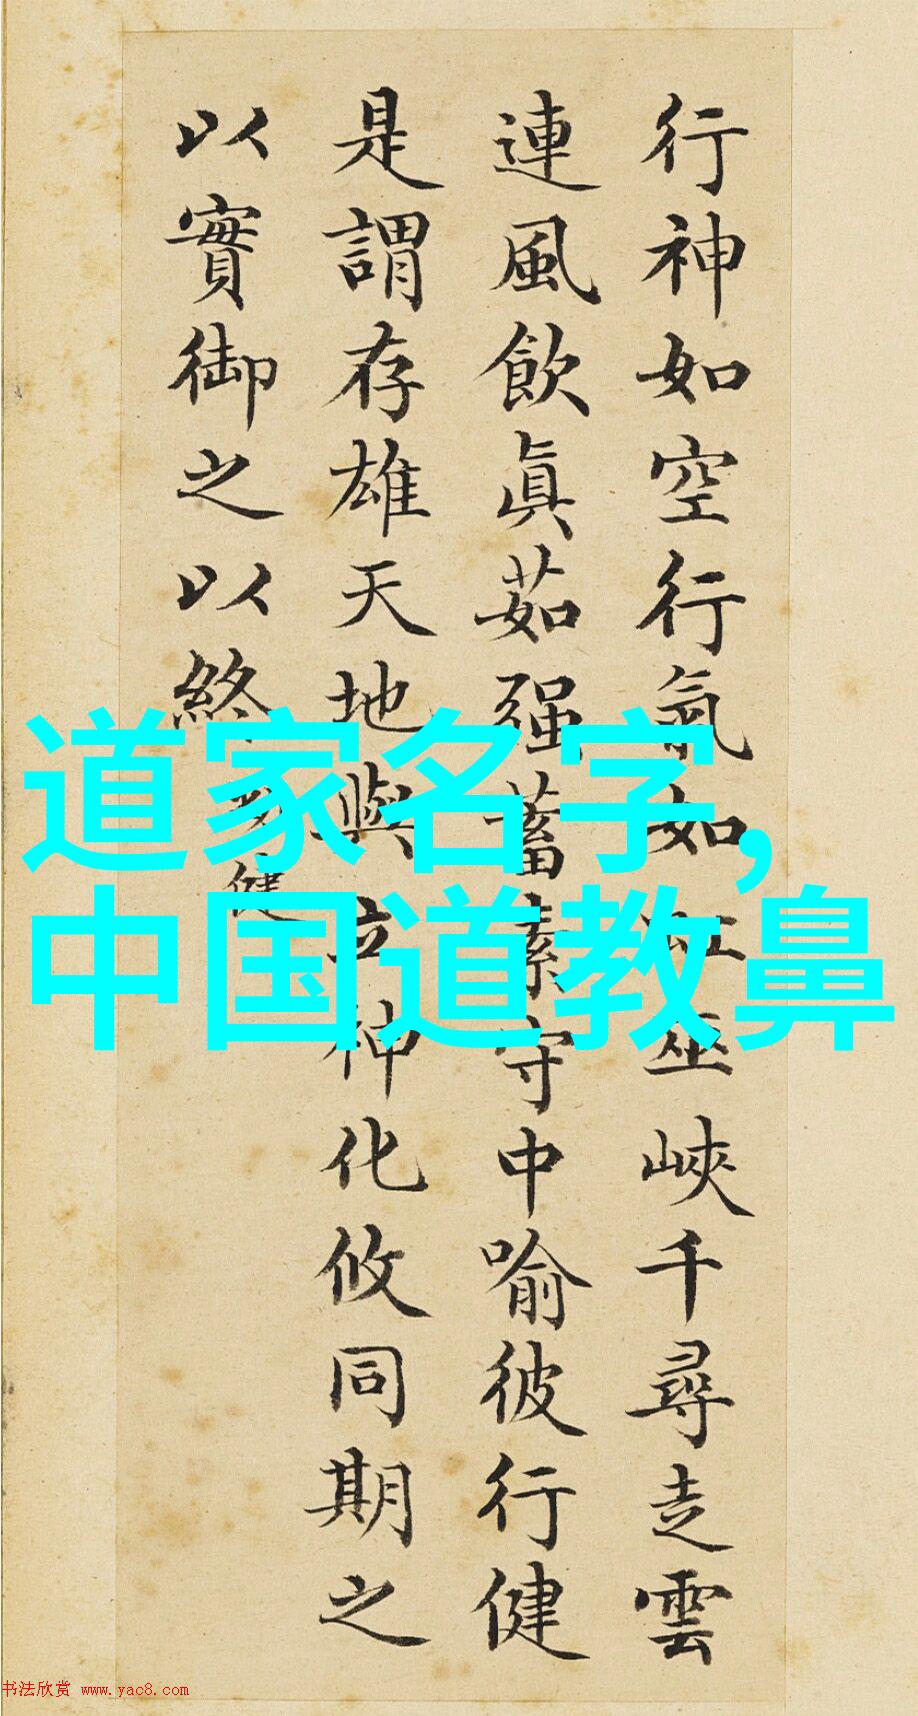 行神如空行氣如虹巫峽千尋走雲
連風飲眞茹强蓄素守中喻彼行健
是謂存雄天地與立神化攸同期之
以實御之以終
健
道家名字,
中国道教鼻
书法欣赏 www.yac8.com